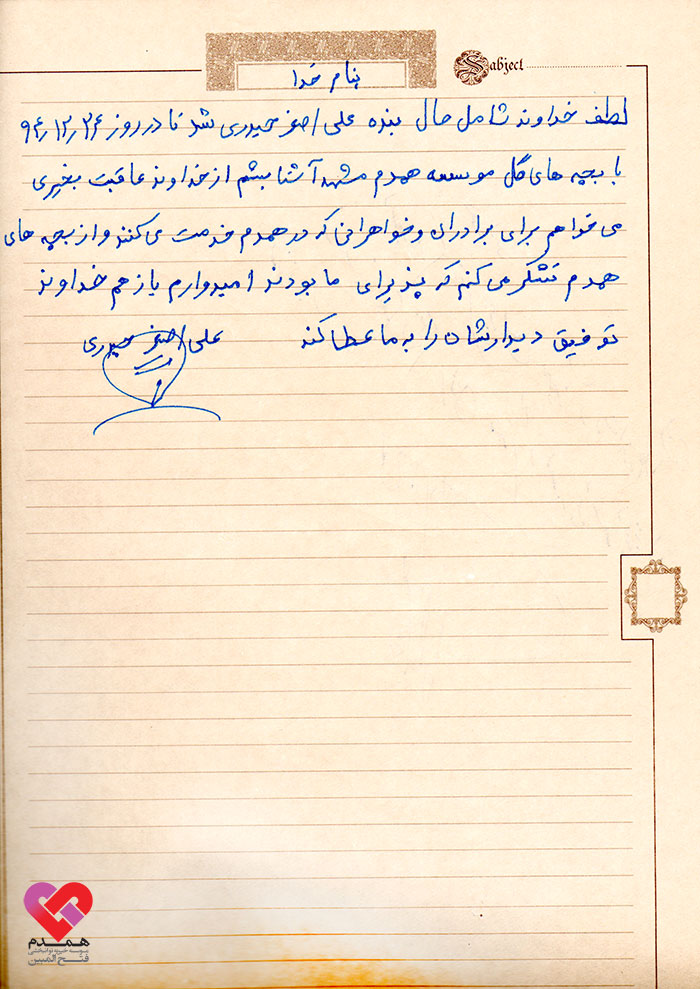 بنام خدا
Sabject
لطف خداوند شامل حال بنده علی اصغر حیدری شد تا در روز ۹۴٫۱۲٫۲۶
با بچه های گل موسسه همدم مشهد آشنا بشم از خداوند عاقبت بخیری
می خواهم برای برادران و خواهرانی که در همدم خدمت می کنند و از بچه های
همدم تشکر می کنم که پذیرای ما بودند امیدوارم باز هم خداوند
توفیق دیدارشان را به ما عطا کند
علی اصغر حیدری
همدم
موسسه خیریه توانبخشی
فتح المبین